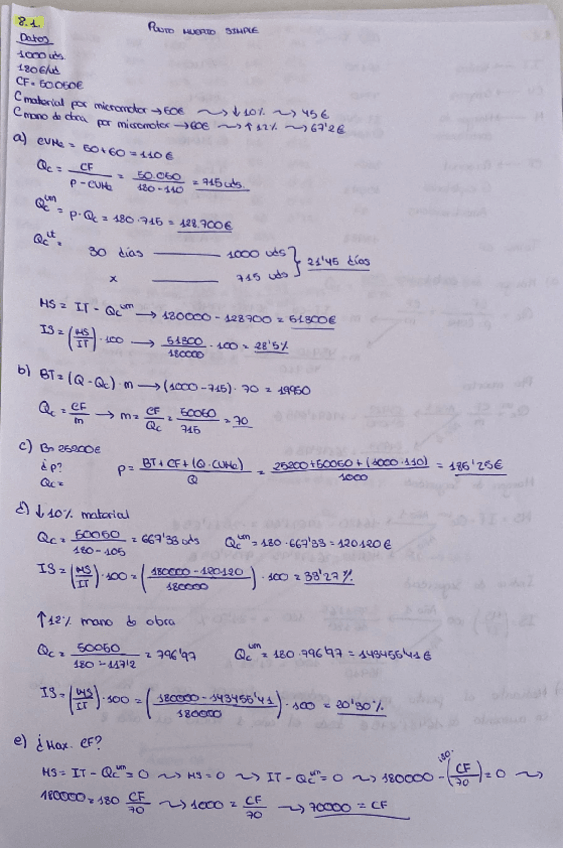 8.1.
PUNTO MUERTO SIMPLE
Datos
1000 uds
180€/ud
CF = 50050€
C material por micromotor → 50€ ⤳ ↓10% ⤳ 45€
C mano de obra por micromotor → 60€ ⤳ ↑12% ⤳ 67'2€
a) CVMe = 50+60 = 110€
Qc = CF / P - CVMe = 50.050 / 180-110 = 715 uds.
Qc^um = P · Qc = 180 · 715 = 128.700€
Qc^ut =
30 días ——— 1000 uds } 21'45 días
x ——— 715 uds
MS = IT - Qc^um → 180000 - 128700 = 51300€
IS = (MS/IT) · 100 → 51300/180000 · 100 = 28'5%
b) BT = (Q - Qc) · m → (1000 - 715) · 70 = 19950
Qc = CF/m → m = CF/Qc = 50050/715 = 70
c) B = 25200€
¿P? P = BT + CF + (Q · CVMe) / Q = 25200 + 50050 + (1000 · 110) / 1000 = 185'25€
Qc =
d) ↓10% material
Qc = 50050 / 180 - 105 = 667'33 uds Qc^um = 180 · 667'33 = 120120€
IS = (MS/IT) · 100 = (180000 - 120120 / 180000) · 100 = 33'27%
↑12% mano de obra
Qc = 50050 / 180 - 117'2 = 796'97 Qc^um = 180 · 796'97 = 143455'41€
IS = (MS/IT) · 100 = (180000 - 143455'41 / 180000) · 100 = 20'30%
e) ¿Max. CF?
MS = IT - Qc^um = 0 ⤳ MS = 0 ⤳ IT - Qc^um = 0 ⤳ 180000 - 180 · (CF/70) = 0 ⤳
180000 = 180 CF/70 ⤳ 1000 = CF/70 ⤳ 70000 = CF